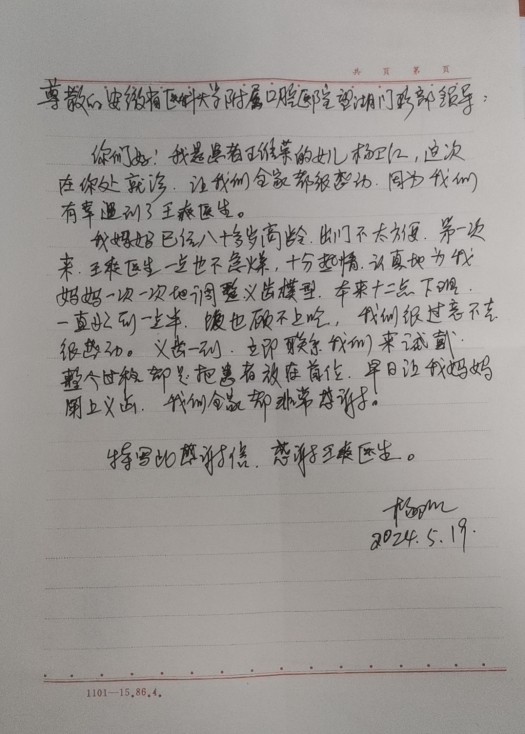 共 页 第 页
尊敬的安徽省医科大学附属口腔医院望湖门诊部领导：
你们好！我是患者王维荣的女儿杨卫江，这次
在你处就诊，让我们全家都很感动，因为我们
有幸遇到了王爽医生。
我妈妈已经八十多岁高龄，出门不太方便，第一次
来，王爽医生一点也不急燥，十分热情，认真地为我
妈妈一次一次地调整义齿模型，本来十二点下班，
一直好到一点半，饭也顾不上吃，我们很过意不去
很感动。义齿一到，立即联系我们来试戴，
整个过程都是把患者放在首位，早日让我妈妈
用上义齿，我们全家都非常感谢。
特写此感谢信，感谢王爽医生。
2024.5.19.
1101—15.86.4.